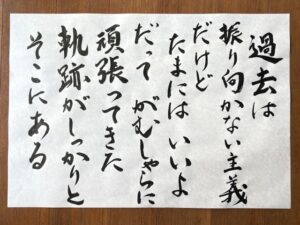 過去は
振り向かない主義
だけど
たまには いいよ
だって がむしゃらに
頑張ってきた
軌跡がしっかりと
そこにある